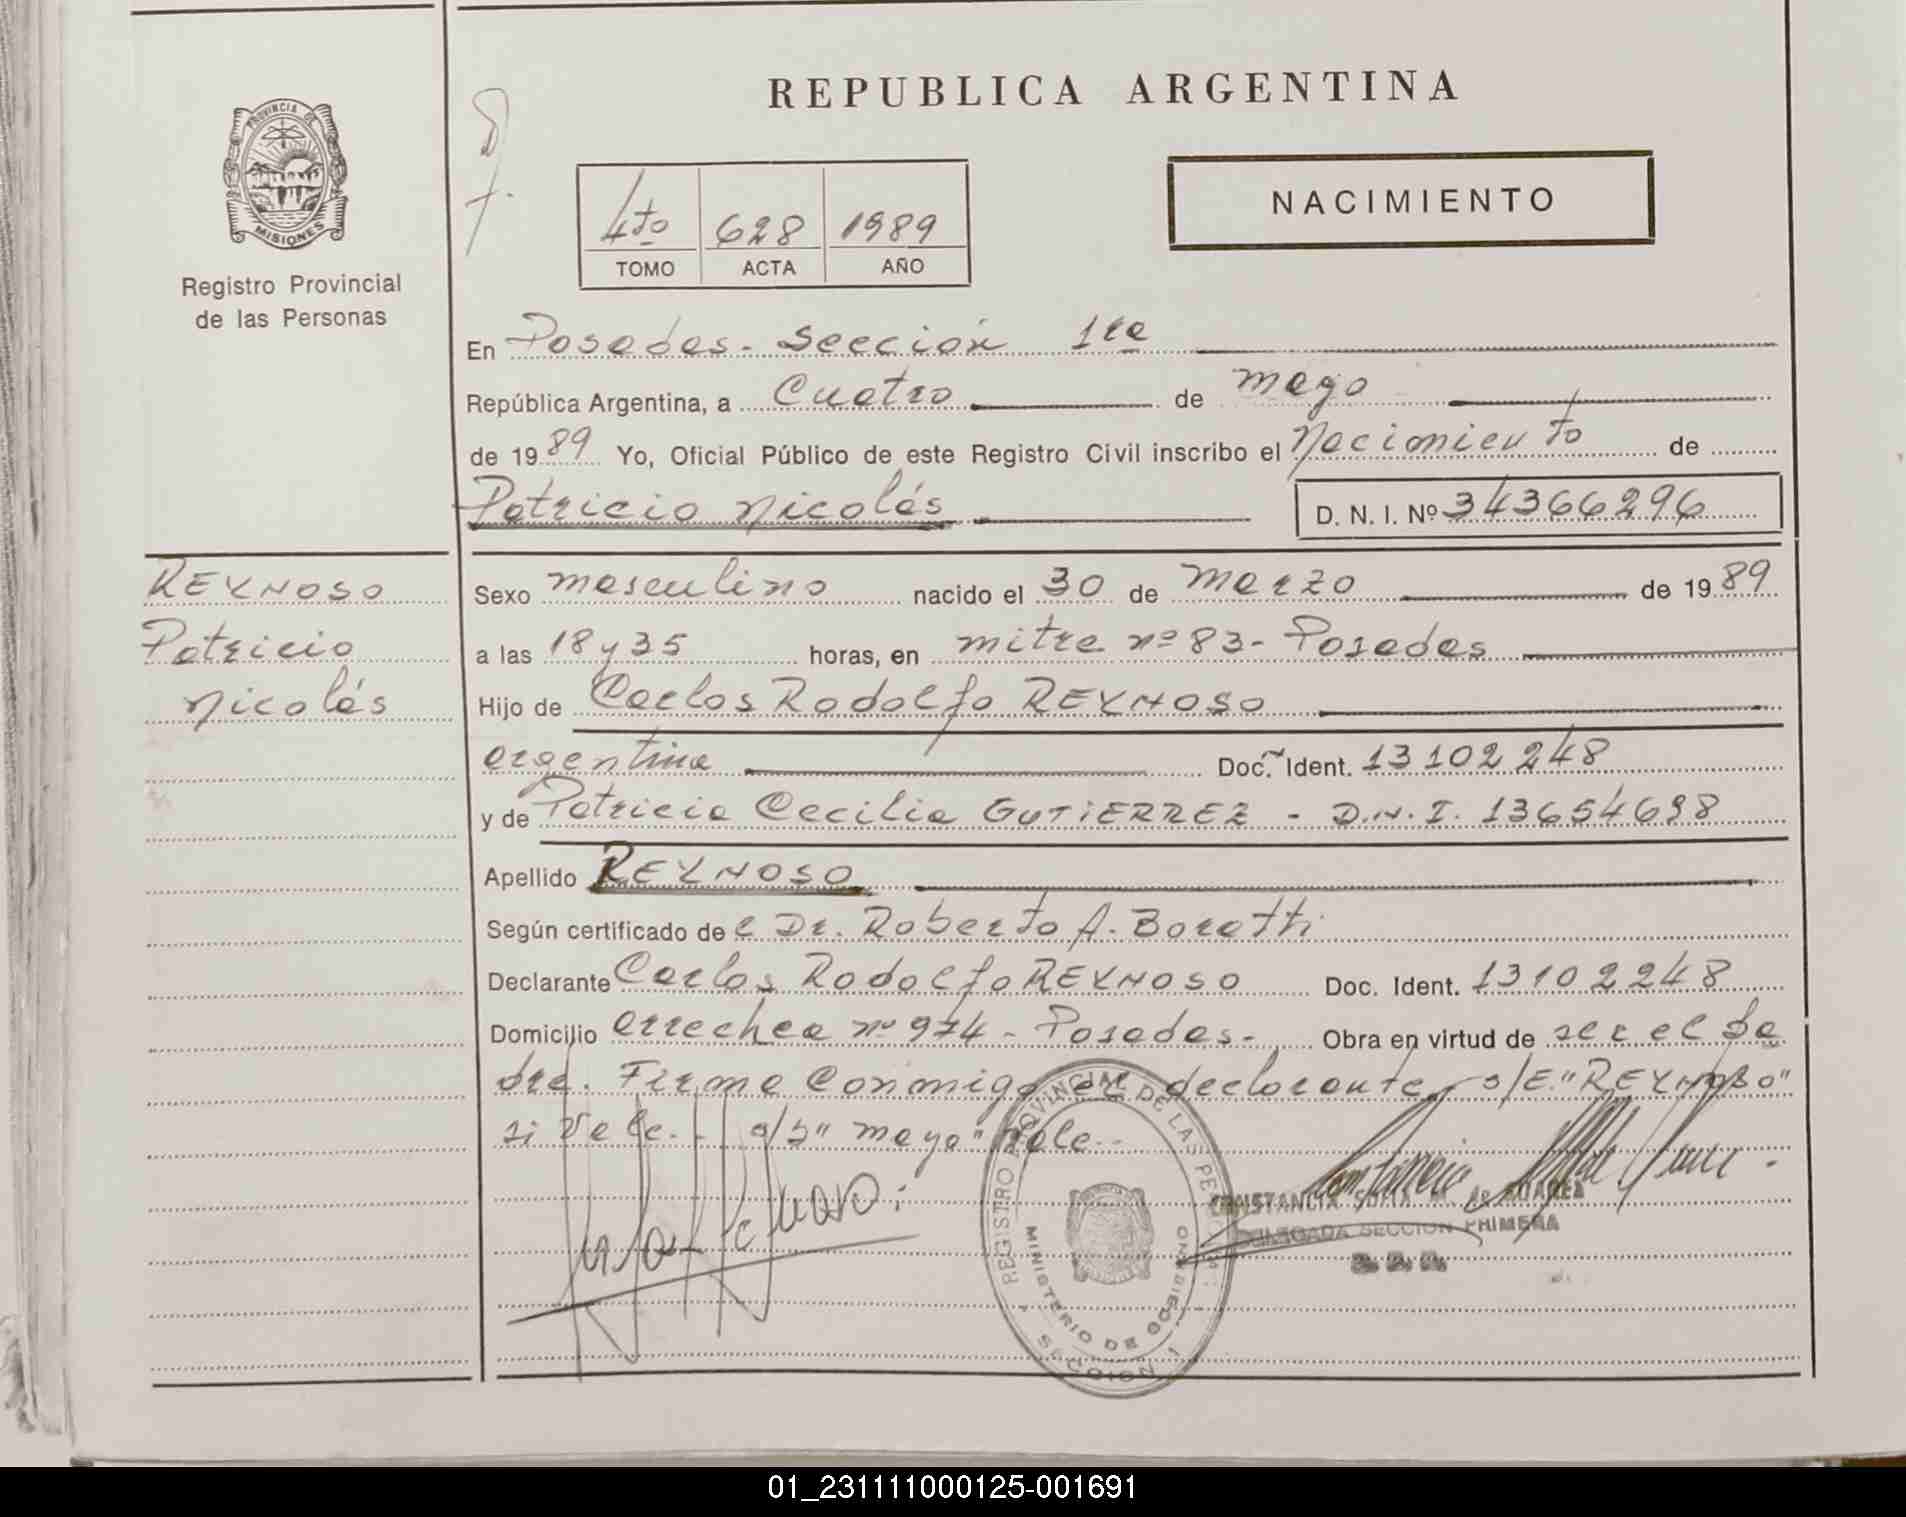 REPUBLICA ARGENTINA
PROVINCIA DE
MISIONES
Registro Provincial
de las Personas
4to 628 1989
TOMO ACTA AÑO
NACIMIENTO
En Posadas - Sección 1ra
República Argentina, a Cuatro de mayo
de 1989 Yo, Oficial Público de este Registro Civil inscribo el Nacimiento de
Patricio Nicolás D. N. I. Nº 34366296
REYNOSO
Patricio
Nicolás
Sexo masculino nacido el 30 de Marzo de 1989
a las 18 y 35 horas, en mitre nº 83 - Posadas
Hijo de Carlos Rodolfo REYNOSO
argentina Doc. Ident. 13102248
y de Patricia Cecilia GUTIERREZ - D.N.I. 13654698
Apellido REYNOSO
Según certificado de l Dr. Roberto A. Boratti
Declarante Carlos Rodolfo REYNOSO Doc. Ident. 13102248
Domicilio arrechea nº 974 - Posadas - Obra en virtud de ser el pa
dre. Firma Conmigo el declarante, s/E. "REYNOSO"
si Vale. - s/b "mayo" Vale. -
REGISTRO PROVINCIAL DE LAS PERSONAS
MINISTERIO DE GOBIERNO
SECCION 1
CONSTANCIA SOFIA M. de SUAREZ
DELEGADA SECCION PRIMERA
01_231111000125-001691